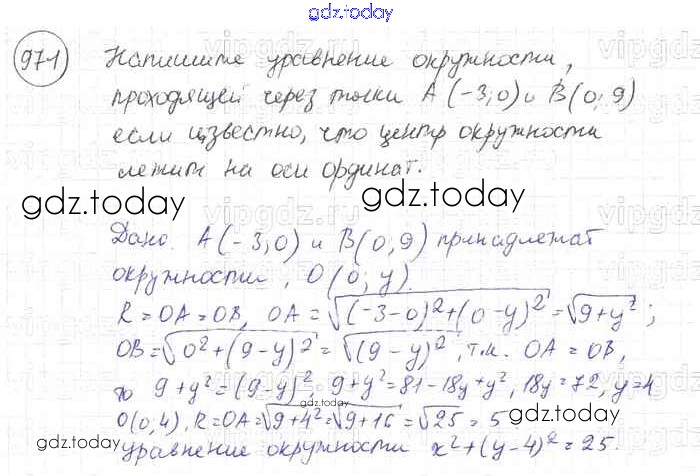 gdz.today
971 Напишите уравнение окружности,
проходящей через точки A(-3;0) и B(0;9)
если известно, что центр окружности
лежит на оси ординат.
gdz.today gdz.today
Дано. A(-3,0) и B(0,9) принадлежат
окружности, O(0; y).
R = OA = OB, OA = √(-3-0)²+(0-y)² = √9+y² ;
OB = √0²+(9-y)² = √(9-y)², т.к. OA = OB,
то 9+y² = (9-y)², 9+y² = 81-18y+y², 18y = 72, y = 4
gdz.today
O(0,4), R = OA = √9+4² = √9+16 = √25 = 5 gdz.today
gdz.today уравнение окружности x²+(y-4)² = 25.